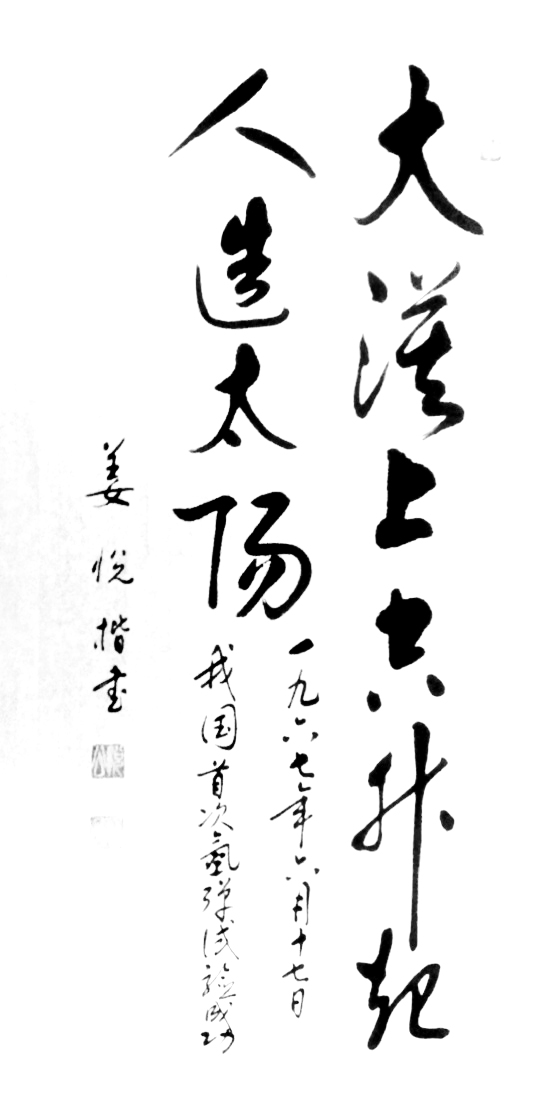 大漠上空升起
人造太阳
一九六七年六月十七日
我国首次氢弹试验成功
姜悦楷书